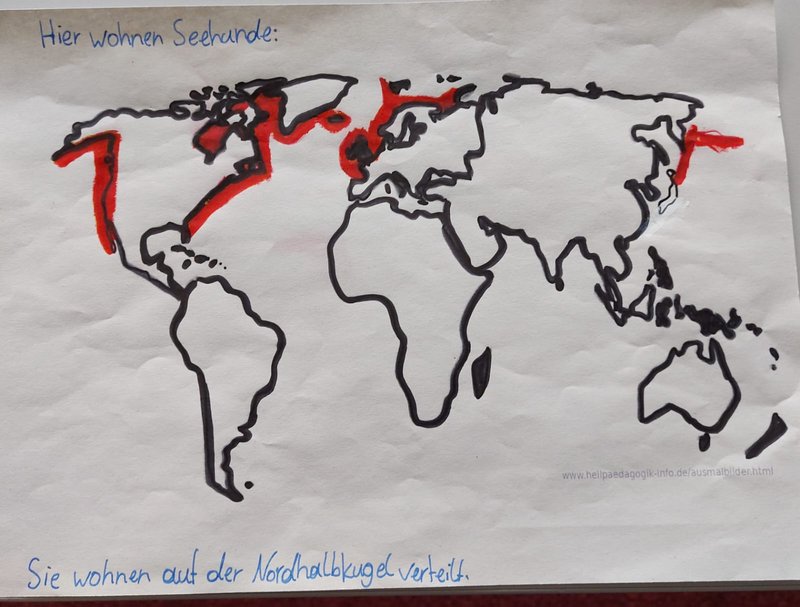 Hier wohnen Seehunde:
www.heilpaedagogik-info.de/ausmalbilder.html
Sie wohnen auf der Nordhalbkugel verteilt.